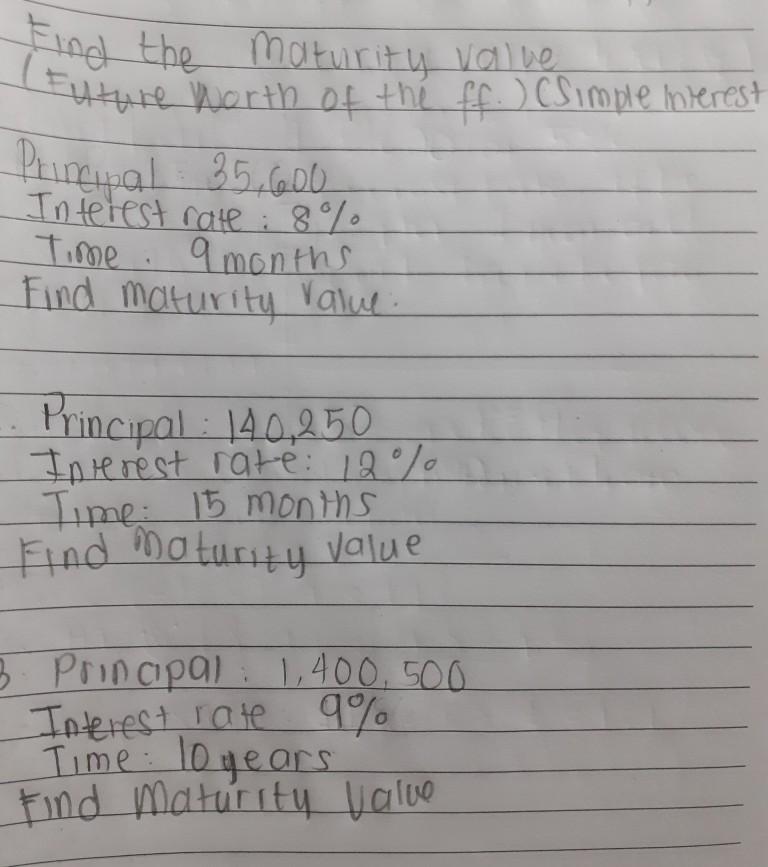 Find the maturity value
(Future Worth of the ff.) (Simple Interest
Principal : 35,600
Interest rate : 8%
Time : 9 months
Find maturity value.
Principal : 140,250
Interest rate: 12%
Time: 15 months
Find Maturity value
3 Principal : 1,400,500
Interest rate 9%
Time: 10 years
Find Maturity Value